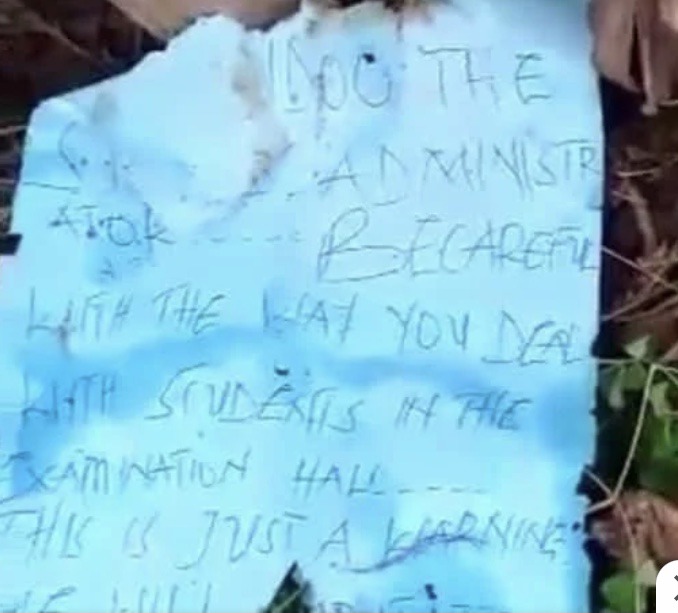 THE
ADMINISTR
ATOR ------- BECAREFUL
WITH THE WAY YOU DEAL
WITH STUDENTS IN THE
EXAMINATION HALL -----
THIS IS JUST A WARNING
WILL